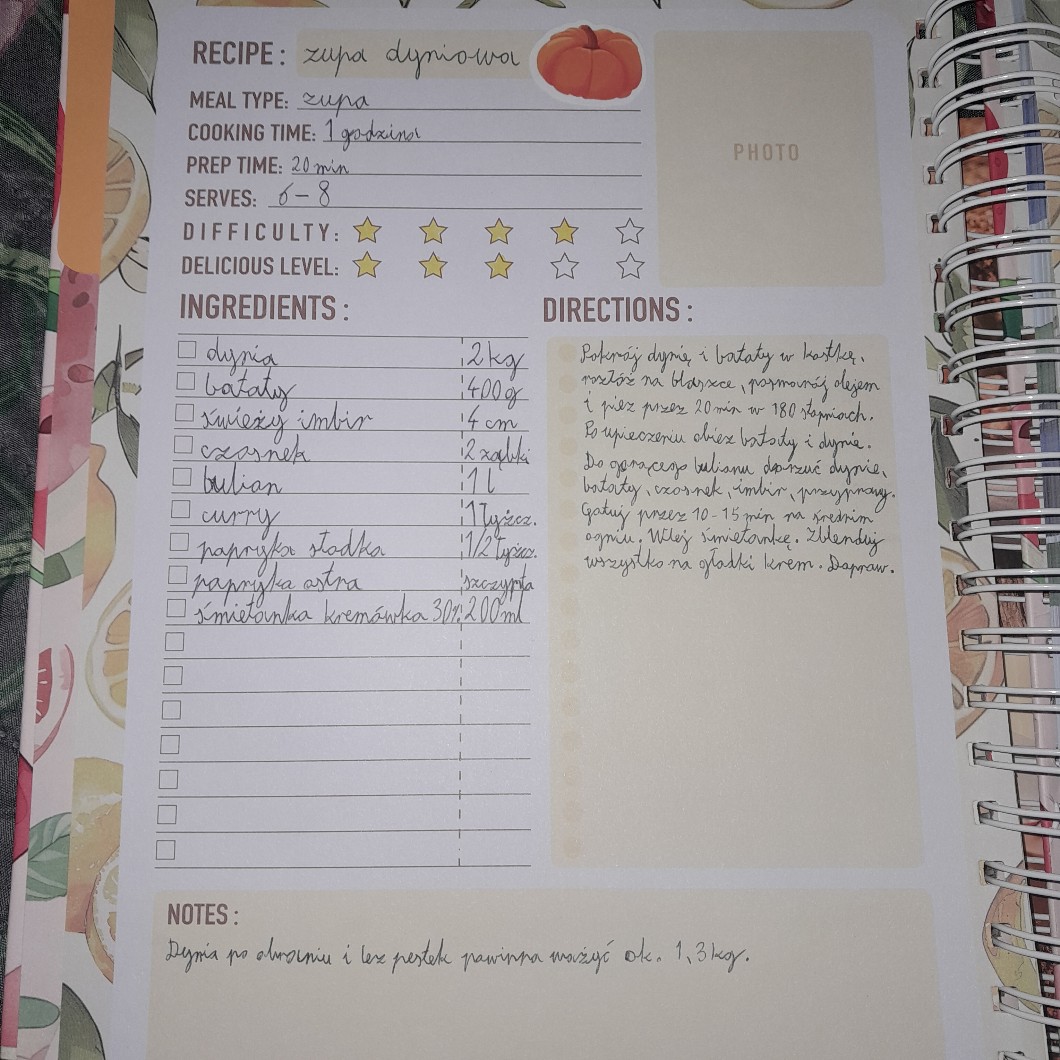 RECIPE: zupa dyniowa
MEAL TYPE: zupa
COOKING TIME: 1 godzina
PREP TIME: 20 min
SERVES: 6-8
DIFFICULTY:
DELICIOUS LEVEL:
PHOTO
INGREDIENTS:
dynia 2 kg
bataty 400 g
świeży imbir 4 cm
czosnek 2 ząbki
bulion 1 l
curry 1 łyżcz.
papryka słodka 1/2 łyżcz.
papryka ostra szczypta
śmietanka kremówka 30% 200 ml
DIRECTIONS:
Pokrój dynię i bataty w kostkę,
rozłóż na blaszce, posmaruj olejem
i piez przez 20 min w 180 stopniach.
Po upieczeniu obierz bataty i dynie.
Do gorącego bulionu dorzuć dynie,
bataty, czosnek, imbir, przyprawy.
Gotuj przez 10-15 min na średnim
ogniu. Wlej śmietankę. Zblenduj
wszystko na gładki krem. Dopraw.
NOTES:
Dynia po obraniu i bez pestek powinna ważyć ok. 1,3 kg.